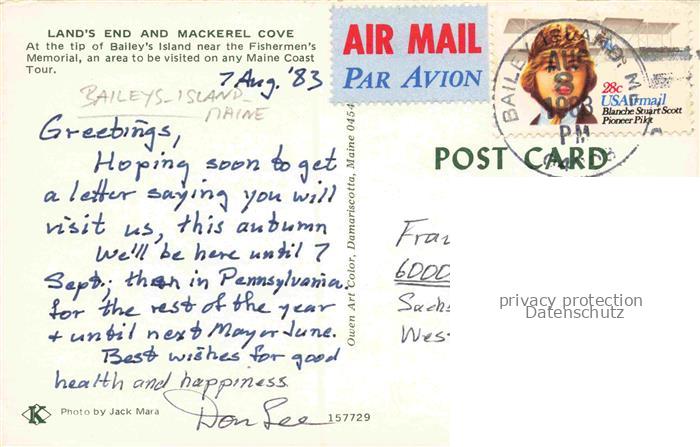 LAND'S END AND MACKEREL COVE
At the tip of Bailey's Island near the Fishermen's
Memorial, an area to be visited on any Maine Coast
Tour.
7 Aug. '83
BAILEYS-ISLAND-
MAINE
Greetings,
Hoping soon to get
a letter saying you will
visit us, this autumn
We'll be here until 7
Sept.; then in Pennsylvania
for the rest of the year
+ until next May or June.
Best wishes for good
health and happiness.
Don Lee
K
Photo by Jack Mara
157729
Owen Art Color, Damariscotta, Maine 0454
AIR MAIL
PAR AVION
BAILEY ISLAND, ME
AUG
8
1983
PM
28c
USAirmail
Blanche Stuart Scott
Pioneer Pilot
POST CARD
Fra
6000
Sachs
Wes
privacy protection
Datenschutz